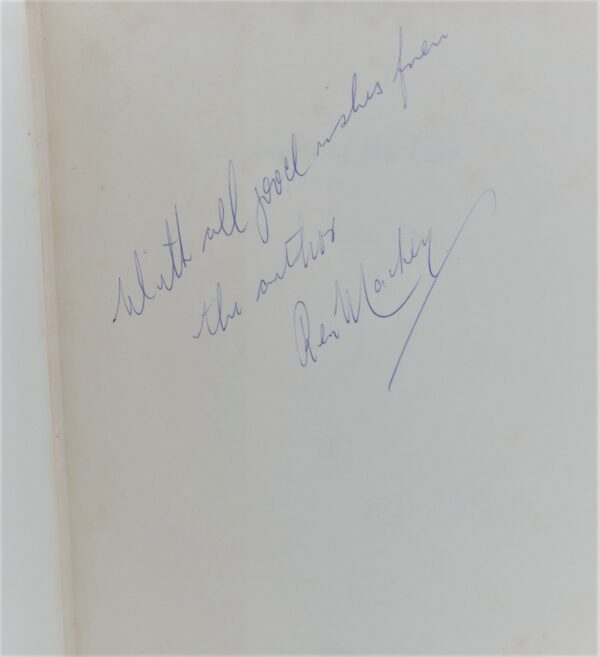 With all good wishes from
the author
Rex Mackey